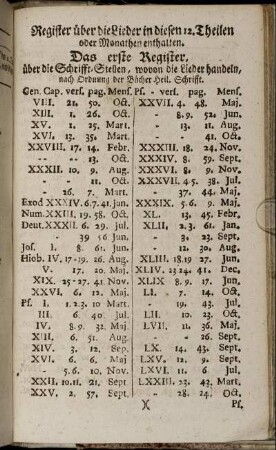 Register über die Lieder in diesen 12. Theilen
oder Monathen enthalten.
Das erste Register,
über die Schrifft-Stellen, wovon die Lieder handeln,
nach Ordnung der Bücher Heil. Schrifft.
Gen. Cap. vers. pag. Mens.
VIII. 21. 50. Oct.
XIII. 1. 26. Oct.
XV. 1. 25. Mart.
XVI. 13. 35. Mart.
XXVIII. 17. 14. Febr.
- - 13. Oct.
XXXII. 10. 9. Aug.
- - 11. Oct.
- 26. 7. Mart.
Exod XXXIV. 6.7. 41. Jun.
Num. XXIII. 19. 58. Oct.
Deut. XXXII. 6. 29. Jul.
39 56 Jun.
Jos. I. 8. 61. Jun.
Hiob. IV. 17-19. 26. Aug.
V. 17. 20. Maj.
XIX. 25-27. 41. Nov.
XXVI. 6. 12. Maj.
Ps. I. 1.2.3. 10 Mart.
III. 6. 40. Jul.
IV. 8. 9. 32. Maj.
XIII. 6. 51. Aug.
XIV. 3. 12. Sep.
XVI. 6. 6. Maj.
- 5.6. 10. Nov.
XXII. 10.11. 21. Sept.
XXV. 2. 57. Sept.
Ps. - vers. pag. Mens.
XXVII. 4. 48. Maj.
- 8.9. 52. Jun.
- 13. 21. Aug.
- - 41. Oct.
XXXIII. 18. 24. Nov.
XXXIV. 8. 59. Sept.
XXXVI. 8. 9. Nov.
XXXVII. 4.5. 38. Jul.
- 37. 44. Maj.
XXXIX. 5. 6. Maj.
XL. 13. 45. Febr.
XLII. 2.3. 61. Jan.
- 3. 23. Sept.
- 12. 30. Aug.
XLIII. 18.19 27. Jun.
XLIV. 23 24. 41. Dec.
XLIX 8.9. 17. Jun.
LI. 7. 14. Oct.
- 19. 43. Jul.
LII. 10. 23. Oct.
LVII. 11. 36. Maj.
- - 26. Sept.
LX. 14. 43. Sept.
LXV. 12. 9. Sept.
LXVI. 11. 6. Jul.
LXXIII. 23. 42. Mart.
- 28. 24. Oct.
X Ps.